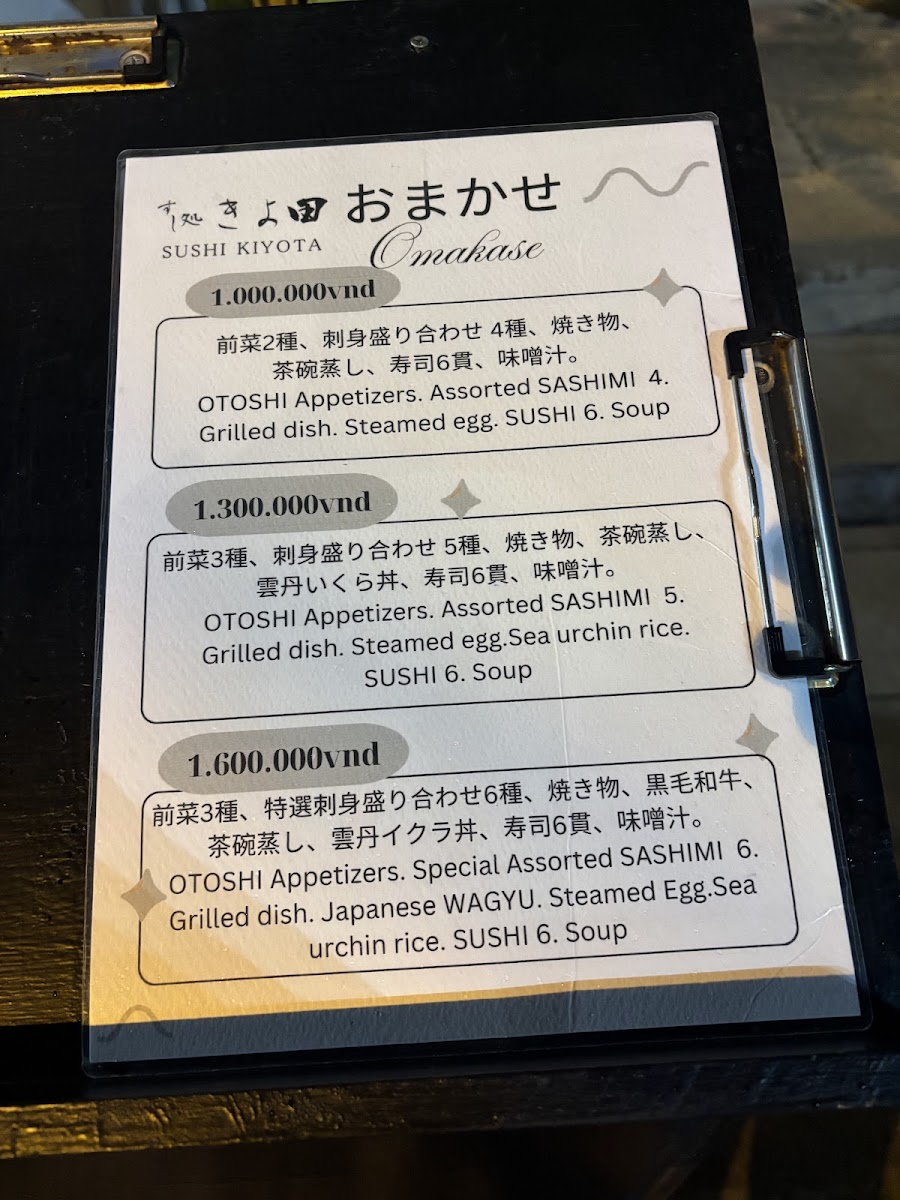 すし処 きよ田 おまかせ
SUSHI KIYOTA Omakase
1.000.000vnd
前菜2種、刺身盛り合わせ 4種、焼き物、
茶碗蒸し、寿司6貫、味噌汁。
OTOSHI Appetizers. Assorted SASHIMI 4.
Grilled dish. Steamed egg. SUSHI 6. Soup
1.300.000vnd
前菜3種、刺身盛り合わせ 5種、焼き物、茶碗蒸し、
雲丹いくら丼、寿司6貫、味噌汁。
OTOSHI Appetizers. Assorted SASHIMI 5.
Grilled dish. Steamed egg.Sea urchin rice.
SUSHI 6. Soup
1.600.000vnd
前菜3種、特選刺身盛り合わせ6種、焼き物、黒毛和牛、
茶碗蒸し、雲丹イクラ丼、寿司6貫、味噌汁。
OTOSHI Appetizers. Special Assorted SASHIMI 6.
Grilled dish. Japanese WAGYU. Steamed Egg.Sea
urchin rice. SUSHI 6. Soup